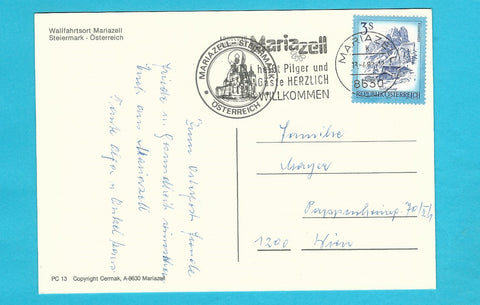 Wallfahrtsort Mariazell
Steiermark - Österreich
Mariazell
heißt Pilger und
Gäste HERZLICH
WILLKOMMEN
MARIAZELL - STEIERMARK
ÖSTERREICH
MARIAZELL
8630
3s
REPUBLIK ÖSTERREICH
Zum Osterfest Freude
Friede u. Gesundheit wünschen
Euch aus Mariazell
Tante Olga u. Onkel
Familie
Mayer
Pappenheimg. 70/
1200 Wien
PC 13 Copyright Cermak, A-8630 Mariazell